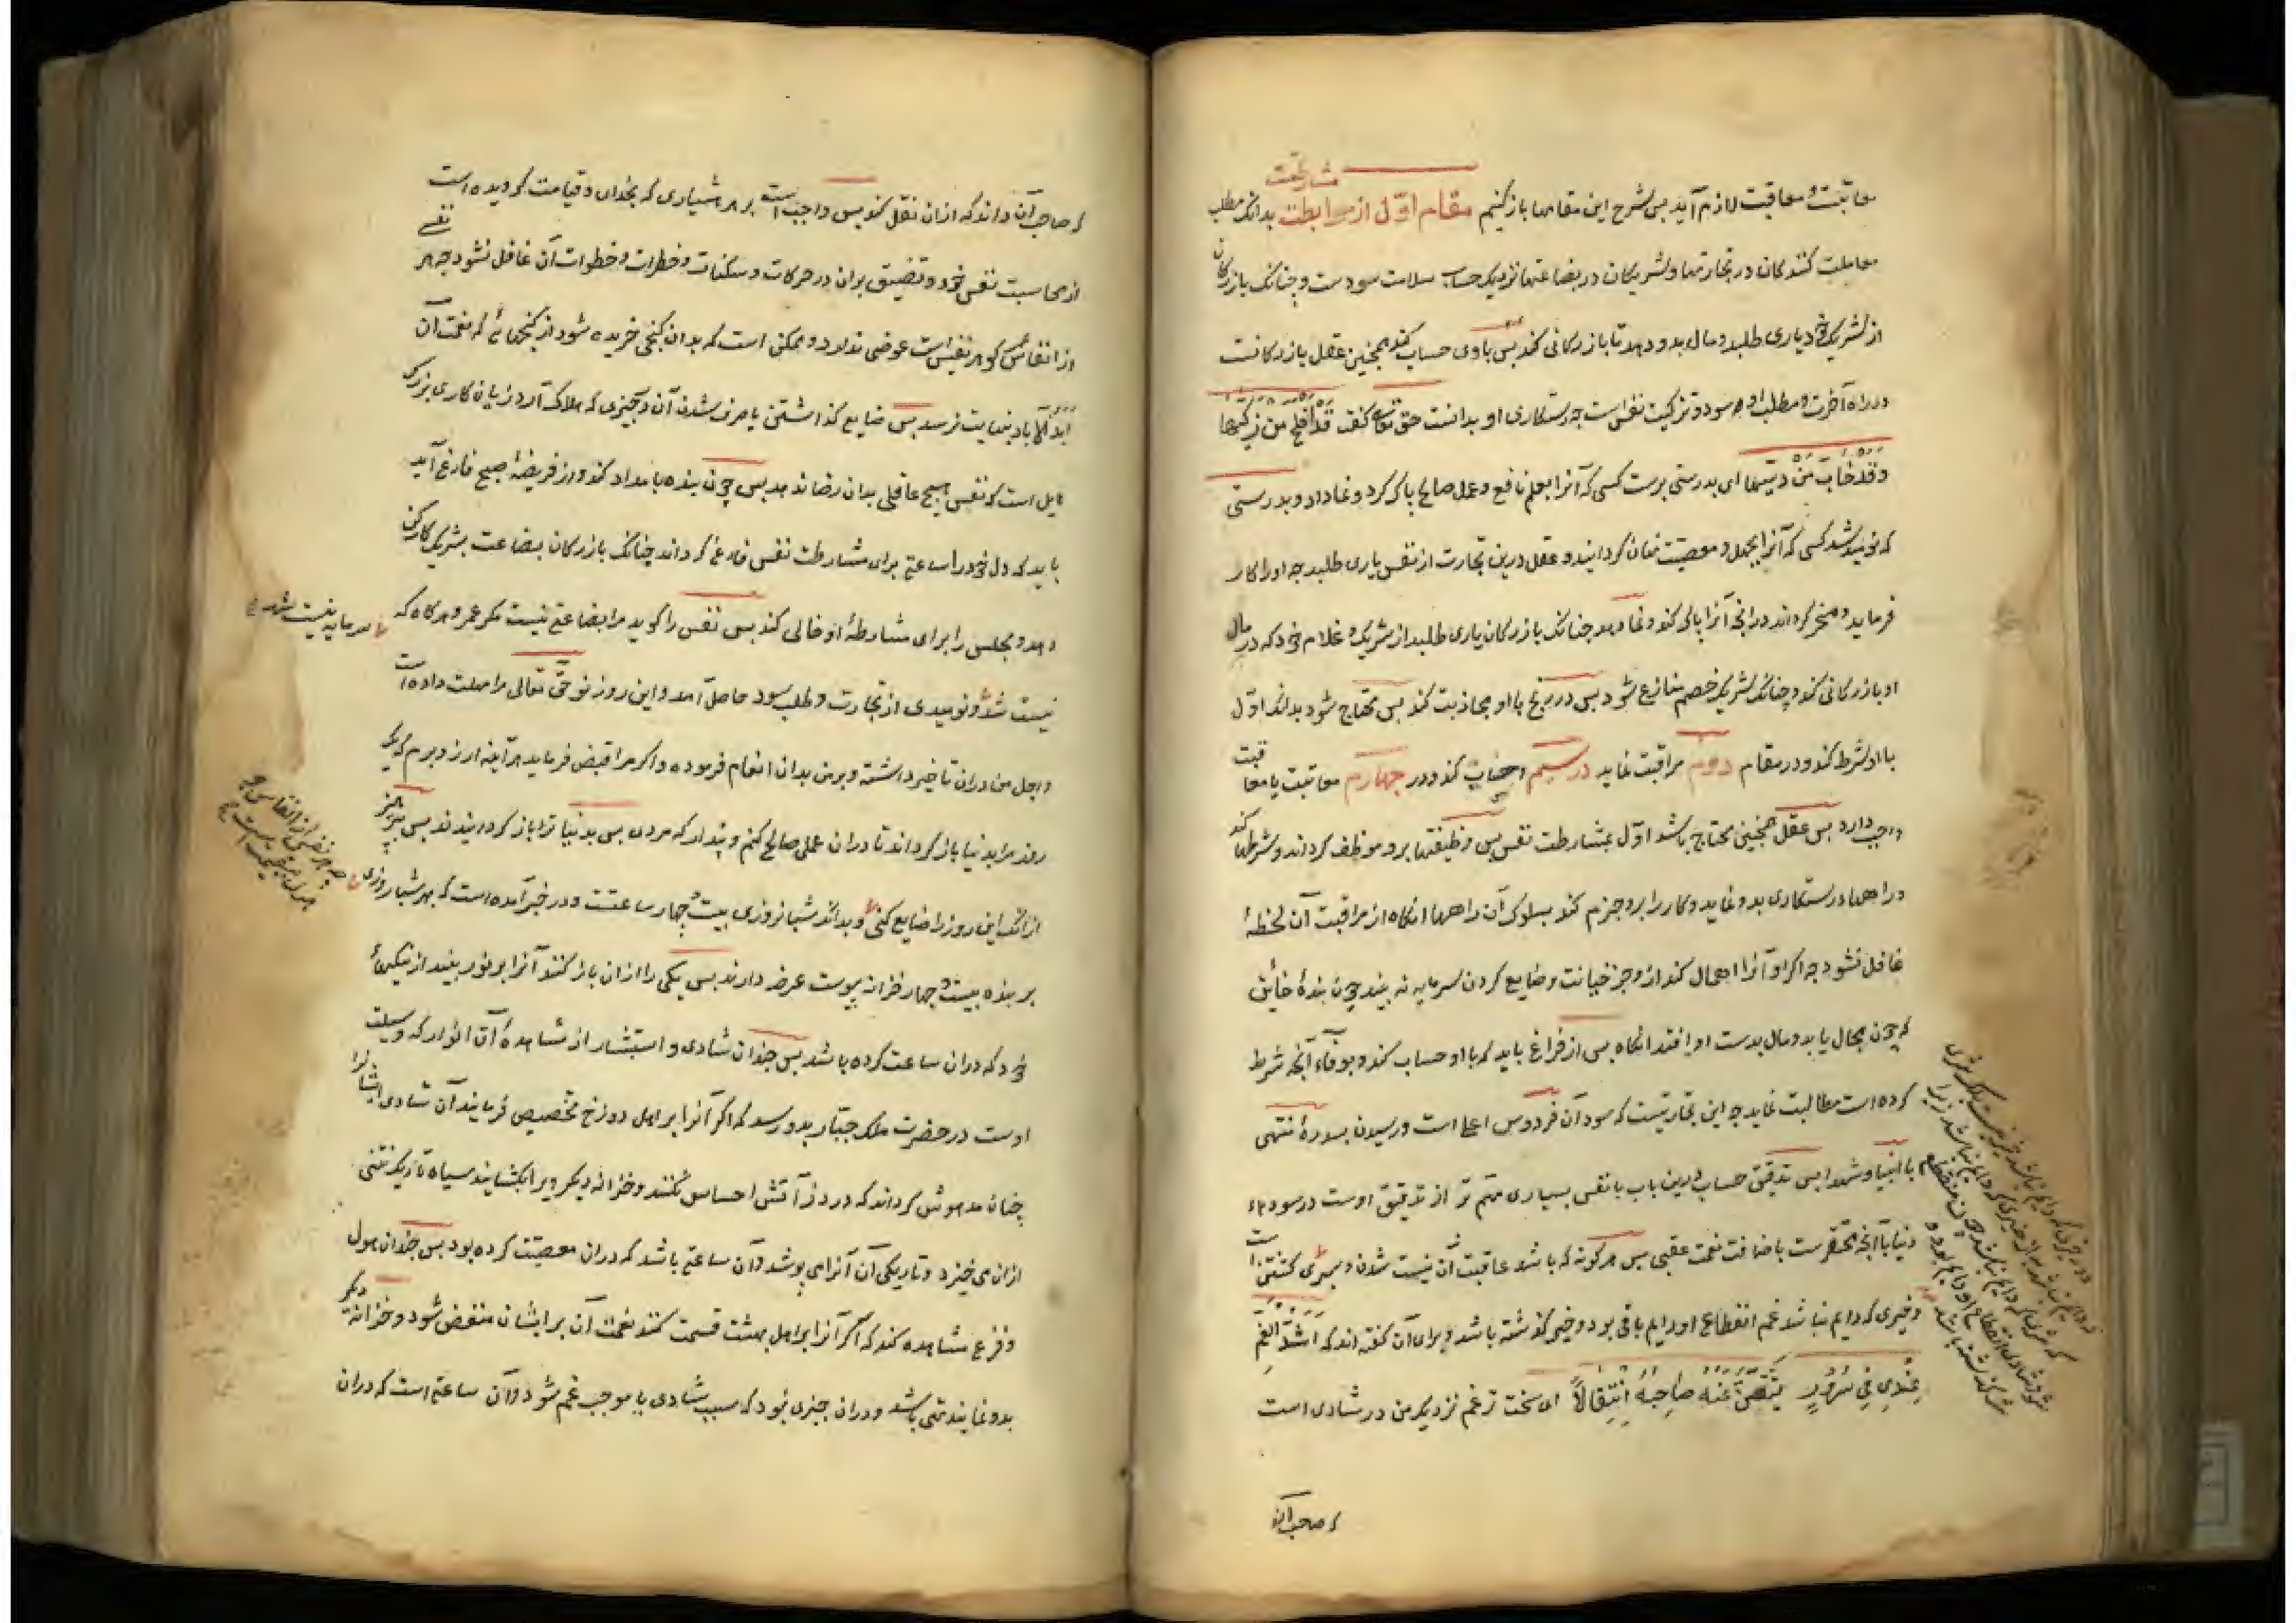 معاتبت و معاقبت لازم آید بس شرح این مقامها بازکنیم مقام اوّل از مرابطت مشارطت بدانک مطلب
معاملت کنندکان در تجارتها و شریکان در بضاعتها نزدیک حساب سلامت سودست و چنانک بازرکان
از شریک خود یاری طلبد و مال بدو دهد تا بازرکانی کند بس باوی حساب کند همچنین عقل بازرکانست
در راه آخرت و مطلب او و سود و تزکیت نفس است جه رستکاری او بدانست حق تعالی کفت قد افلح من زکیها
وقد خاب من دسیها ای بدرستی برست کسی که آنرا بعلم نافع و عمل صالح پاک کرد و نما داد و بدرستی
که نومید شد کسی که آنرا بجهل و معصیت نهان کردانید و عقل درین تجارت از نفس یاری طلبد جه او را کار
فرماید و مسخر کرداند در آنچه آنرا پاک کند و نما دهد چنانک بازرکان یاری طلبد از شریک و غلام خود که در مال
او بازرکانی کند و چنانک شریک خصم منازع شود بس در ربح با او مجاذبت کند بس محتاج شود بدانک اوّل
با او شرط کند و در مقام دوم مراقبت نماید در سیم حساب کند و در چهارم معاتبت یا معاقبت
واجب دارد بس عقل همچنین محتاج باشد اوّل بمشارطت نفس بس وظیفتها برو موظف کرداند و شرطها کند
و راهها رستکاری بدو نماید و کار را برو جزم کند بسلوک آن راهها انکاه از مراقبت آن لحظهٔ
غافل نشود جه اکر او آنرا اهمال کند از و جز خیانت و ضایع کردن سرمایه نه بیند چون بندهٔ خائن
که چون مجال یابد و مال بدست او افتد انکاه بس از فراغ باید که با او حساب کند و بوفاء آنچه شرط
کرده است مطالبت نماید جه این تجارتیست که سود آن فردوس اعلی است و رسیدن بسدرهٔ منتهی
با انبیا و شهدا بس تدقیق حساب درین باب با نفس بسیاری مهم تر از تدقیق اوست در سودهاء
دنیا با آنچه محتقرست باضافت نعمت عقبی بس هرکونه که باشد عاقبت آن نیست شدن و سپری کشتن است
و خیری که دایم نباشد غم انقطاع او دایم باقی بود و خیر کذشته باشد و برای آن کفته اند که اشدّ الغم
عندی فی سرور تیقّن عنه صاحبه انتقالا ای سخت تر غم نزدیک من در شادی است
که صاحب آن
که صاحب آن داند که ازان نقل کند بس واجب است بر هر هشیاری که بخدای و قیامت کرویده است
از محاسبت نفس خود و تضییق بران در حرکات و سکنات و خطرات و خطوات آن غافل نشود جه هر نفسی
از انفاس کوهر نفیس است عوضی ندارد و ممکن است که بدان کنجی خریده شود از کنجهائی که نعمت آن
ابد آلآباد بنهایت نرسد بس ضایع کذاشتن یا صرف شدن آن در چیزی که هلاک آرد زیان کاری بزرک
هایل است که نفس هیچ عاقلی بدان رضا ندهد بس چون بنده بامداد کند و از فریضهٔ صبح فارغ آید
باید که دل خود را ساعتی برای مشارطت نفس فارغ کرداند چنانک بازرکان بضاعت بشریک کارکن
دهد و مجلس را برای مشارطهٔ او خالی کند بس نفس را کوید مرا بضاعتی نیست مکر عمر و هرکاه که
سرمایه نیست شد
نیست شد و نومیدی از تجارت و طلب سود حاصل آمد و این روز نو حقّ تعالی مرا مهلت داده است
و اجل من دران تاخیر داشته و برمن بدان انعام فرموده و اکر مرا قبض فرماید هرآینه ارزو برم که یک
روز مرا بدنیا باز کرداند تا دران عملی صالح کنم و پندار که مردی بس بدنیا ترا باز کردانیدند بس بپرهیز
ازانک این روز را ضایع کنی و بدانک شبانروزی بیست و چهار ساعتست و در خبر آمده است که بهر شبانروزی
بر بنده بیست و چهار خزانه پیوست عرض دارند بس یکی را ازان باز کنند آنرا پر نور بیند از نیکیهاء
خود که دران ساعت کرده باشد بس چندان شادی و استبشار از مشاهدهٔ آن انوار که وسیلت
اوست در حضرت ملک جبّار بدو رسد که اکر آنرا بر اهل دوزخ تخصیص فرمایند آن شادی ایشانرا
چنان مدهوش کرداند که درد آتش احساس نکنند و خزانه دیکر ویرا بکشایند سیاه تاریک نتنی
ازان می خیزد و تاریکی آن آنرا می پوشد و آن ساعتی باشد که دران معصیت کرده بود بس چندان هول
و فزع مشاهده کند که اکر آنرا بر اهل بهشت قسمت کنند نعمت آن بر ایشان منغض شود و خزانهٔ دیکر
بدو نمایند تهی باشد و دران چیزی نبود که سبب شادی یا موجب غم شود و آن ساعتی است که دران